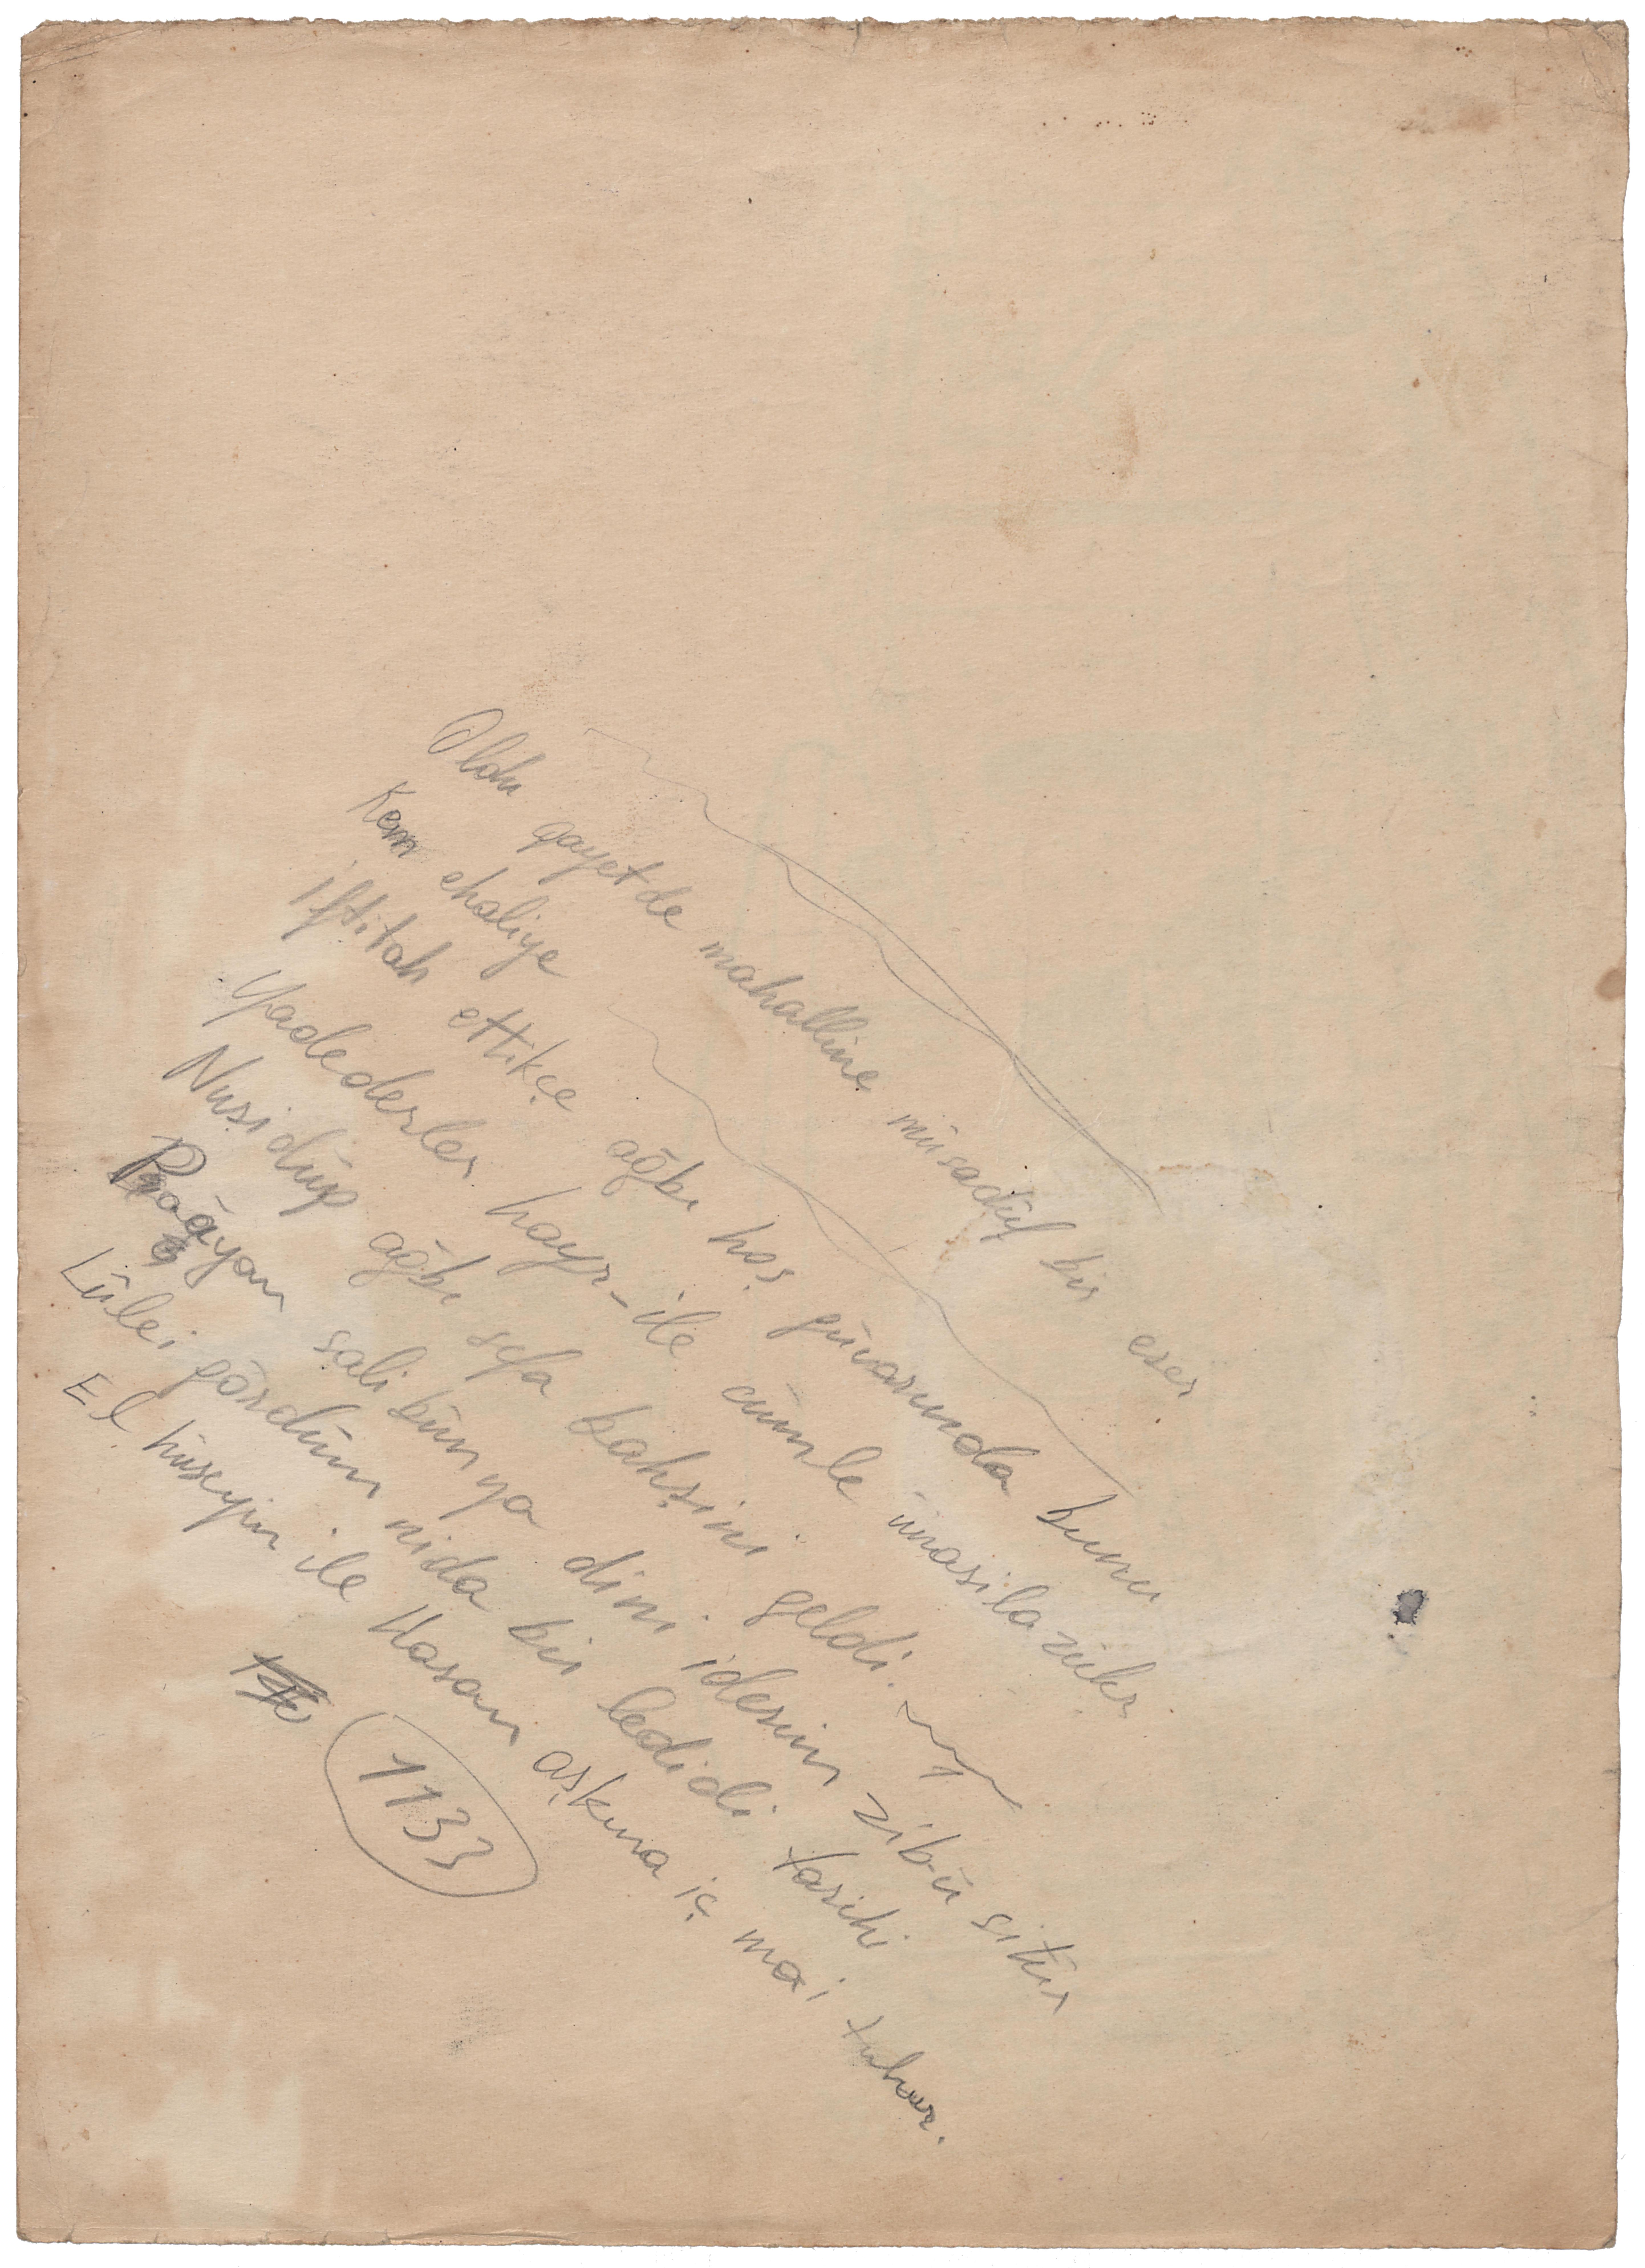 Oldu gayetde mahalline müsadüf bir eser
Kem ehaliye
iftitah ettikçe ağbı hoş güvarında bunu
Yadederler hayr-ile cümle
Nuş idüp ağbı sefa bahşini geldi
sali bün ya dini idesin zib-ü sitür
Lülei gördüm nida bir ledidi tarihi
El hüseyin ile Hasan aşkına iç mai tuhur.
1133